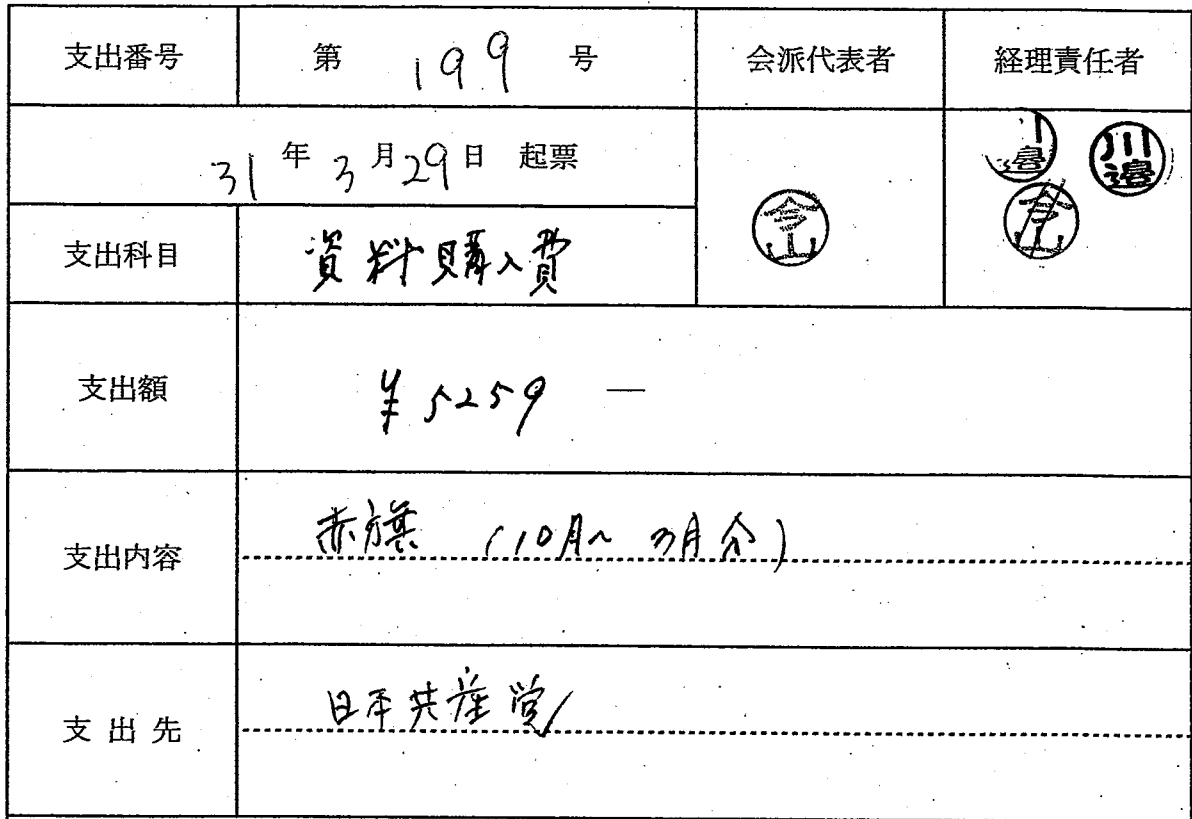 支出番号 第 199 号 会派代表者 経理責任者
31 年 3 月 29 日 起票
今山 川邉 今山 川邉
支出科目 資料購入費
支出額 ¥5259 —
支出内容 赤旗 (10月~3月分)
支出先 日本共産党